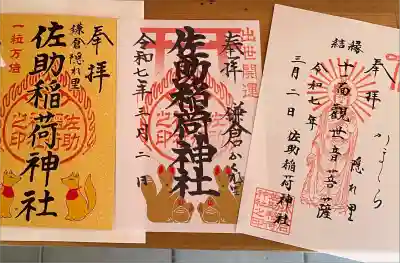 奉拝
鎌倉隠れ里
佐助稲荷神社
一粒万倍
佐助
之印
出世開運
奉拝
鎌倉かくれ里
佐助稲荷神社
令和七年三月二日
奉拝
かまくら
隠れ里
結縁
十一面観世音菩薩
令和七年
三月二日
佐助稲荷神社